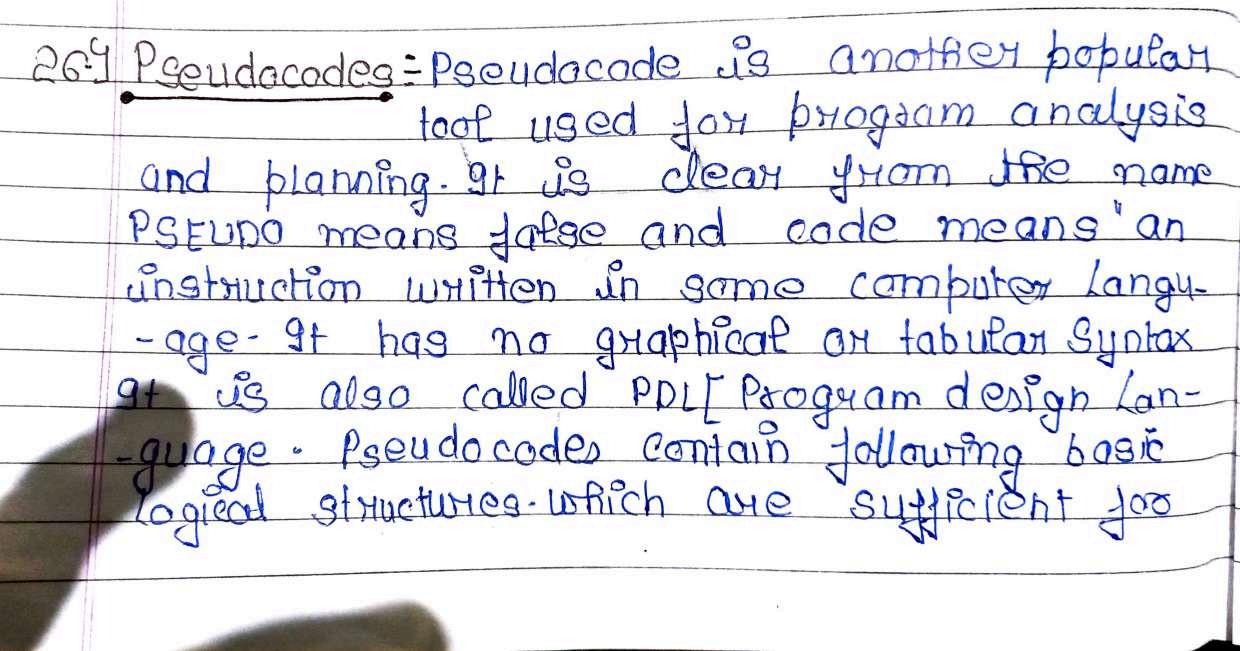 26.4 Pseudocodes = Pseudocode is another popular
tool used for program analysis
and planning. It is clear from the name
PSEUDO means false and code means "an
instruction written in some computer Langu-
-age. It has no graphical or tabular Syntax
It is also called PDL[Program design Lan-
-guage. Pseudocodes contain following basic
logical structures. which are sufficient for